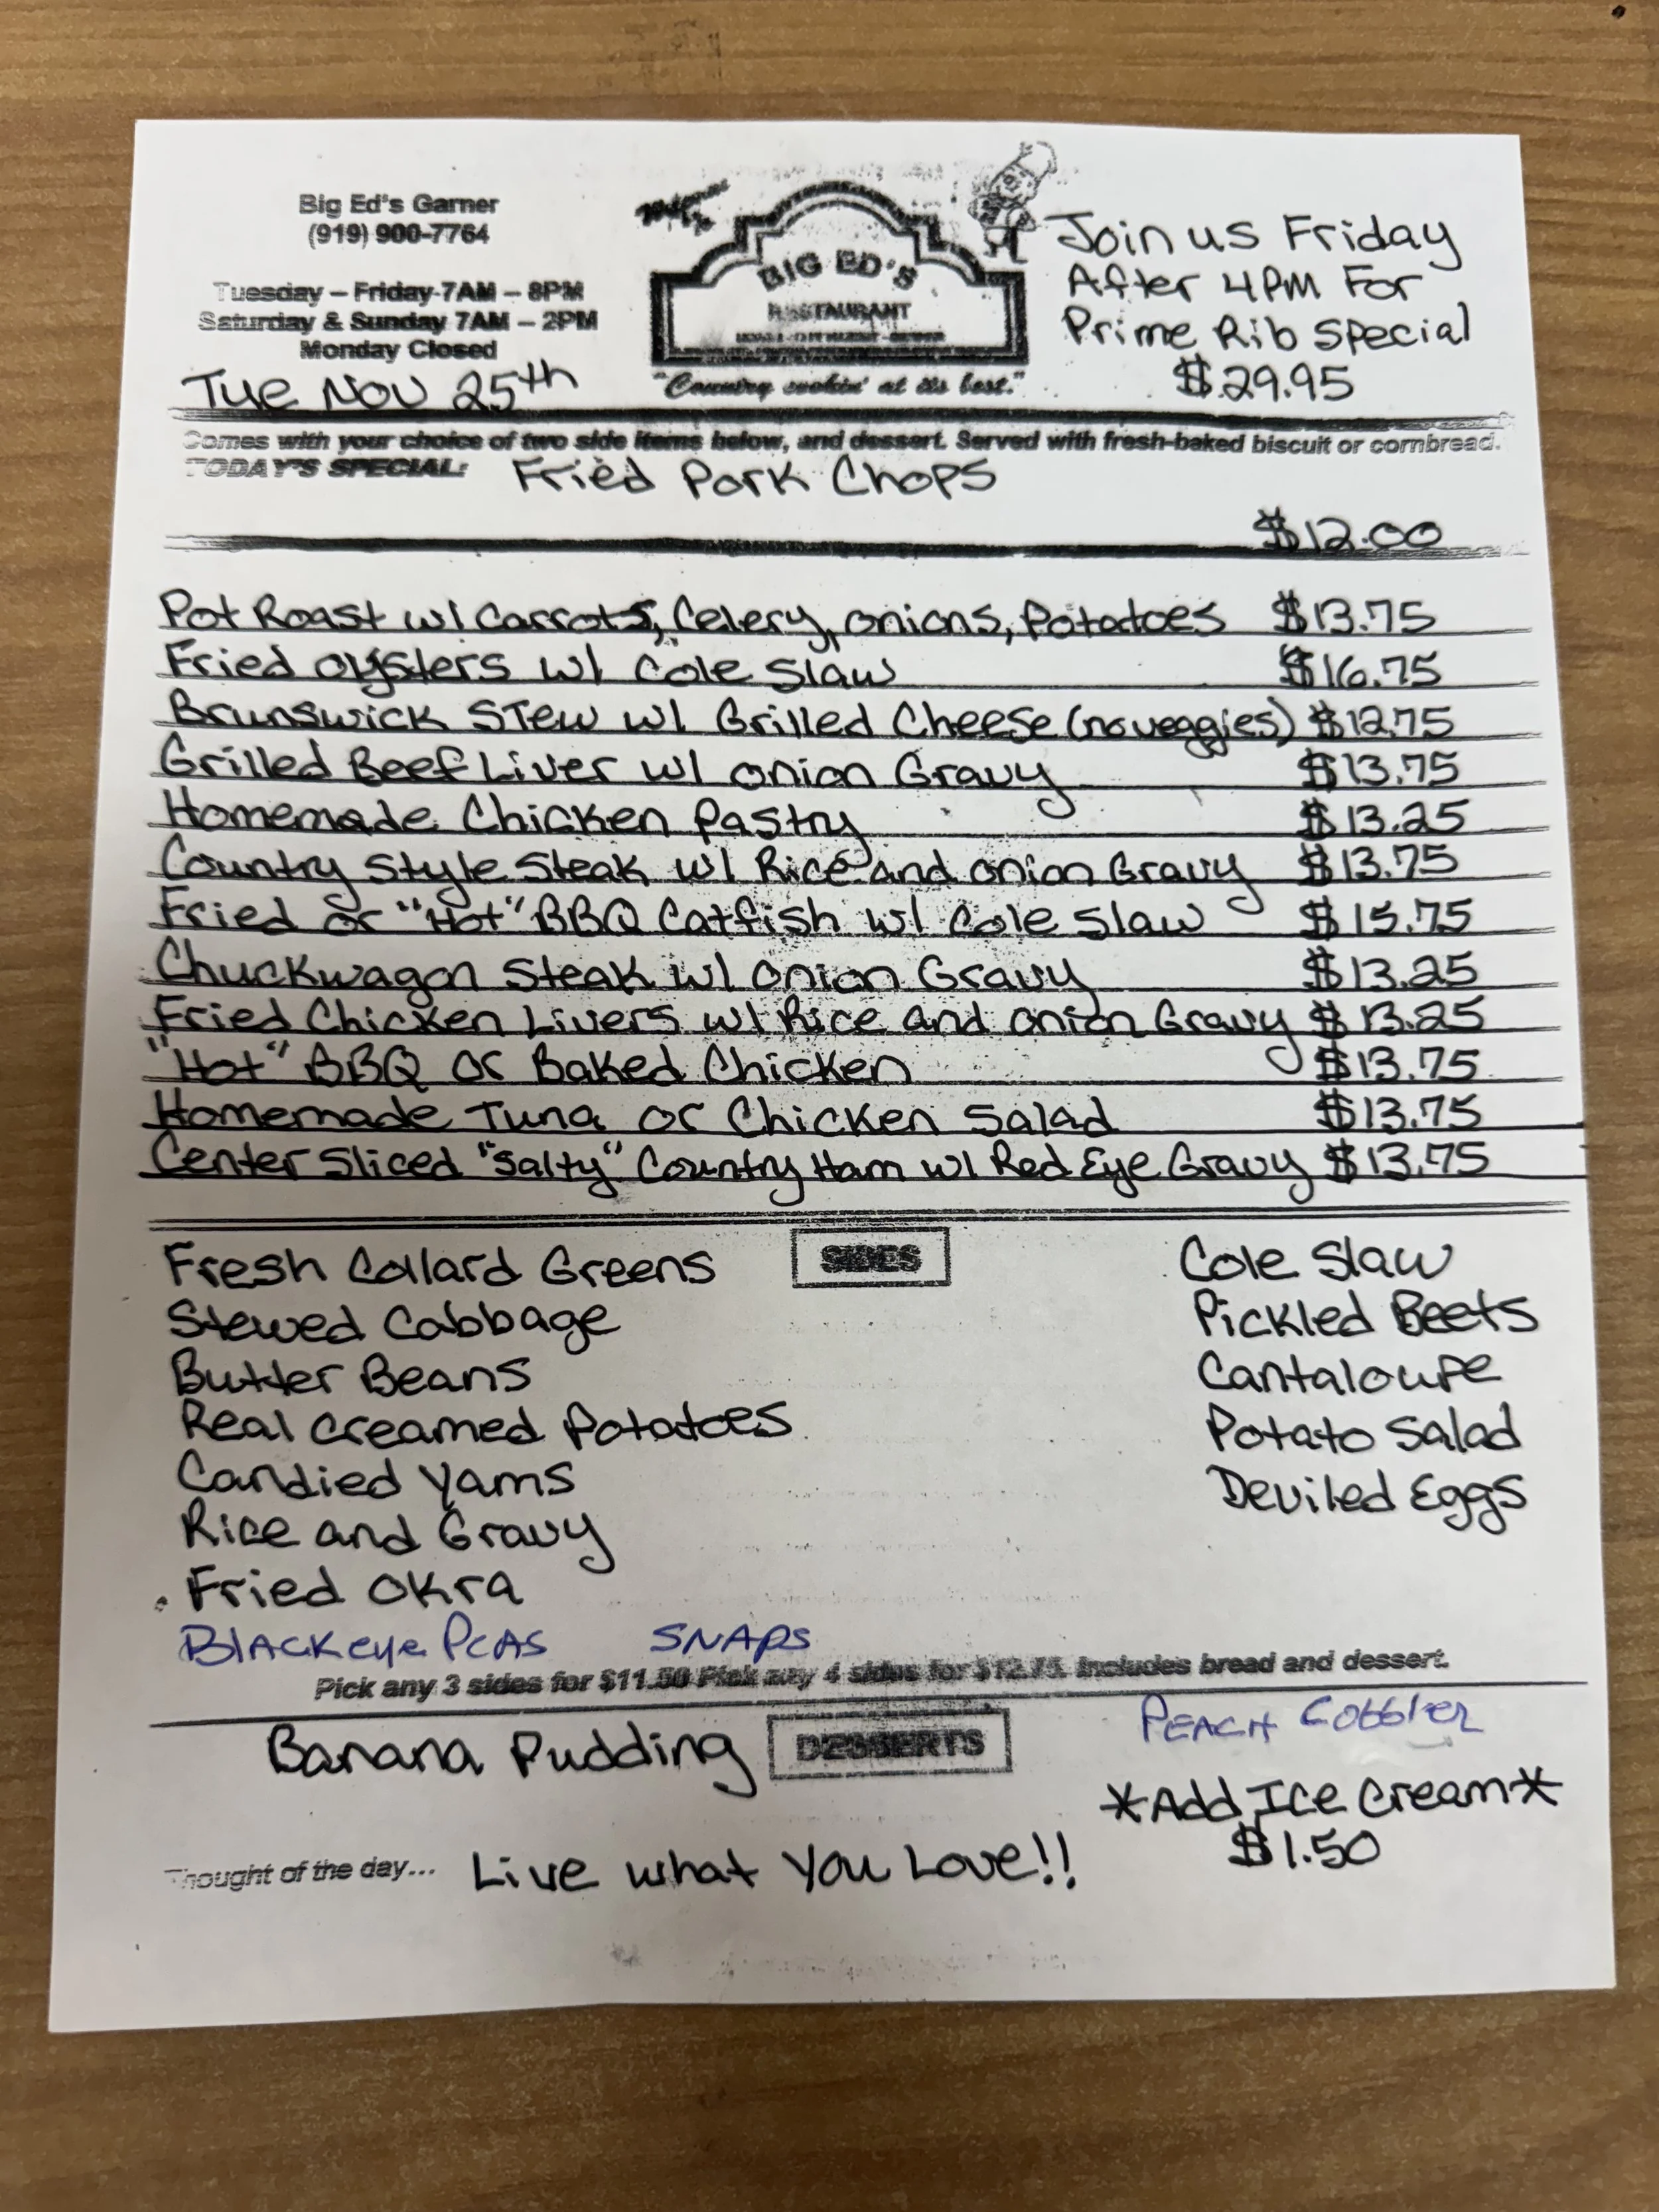 Big Ed's Garner
(919) 900-7764
Tuesday – Friday 7AM – 8PM
Saturday & Sunday 7AM – 2PM
Monday Closed
Tue Nov 25th
BIG ED'S
RESTAURANT
"Country cookin' at its best."
Join us Friday
After 4PM For
Prime Rib Special
$29.95
Comes with your choice of two side items below, and dessert. Served with fresh-baked biscuit or cornbread.
TODAY'S SPECIAL: Fried Pork Chops
$12.00
Pot Roast w/ Carrots, Celery, onions, Potatoes $13.75
Fried oysters w/ Cole Slaw $16.75
Brunswick Stew w/ Grilled Cheese (no veggies) $12.75
Grilled Beef Liver w/ onion Gravy $13.75
Homemade Chicken Pastry $13.25
Country Style Steak w/ Rice and onion Gravy $13.75
Fried or "Hot" BBQ Catfish w/ Cole Slaw $15.75
Chuckwagon Steak w/ onion Gravy $13.25
Fried Chicken Livers w/ Rice and onion Gravy $13.25
"Hot" BBQ or Baked Chicken $13.75
Homemade Tuna or Chicken Salad $13.75
Center Sliced "Salty" Country Ham w/ Red Eye Gravy $13.75
SIDES
Fresh Collard Greens
Stewed Cabbage
Butter Beans
Real Creamed Potatoes
Candied Yams
Rice and Gravy
Fried Okra
Blackeye Peas SNAPS
Cole Slaw
Pickled Beets
Cantaloupe
Potato Salad
Deviled Eggs
Pick any 3 sides for $11.50 Pick any 4 sides for $12.75. Includes bread and dessert.
DESSERTS
Banana Pudding
Peach Cobbler
*Add Ice Cream*
$1.50
Thought of the day... Live what You Love!!